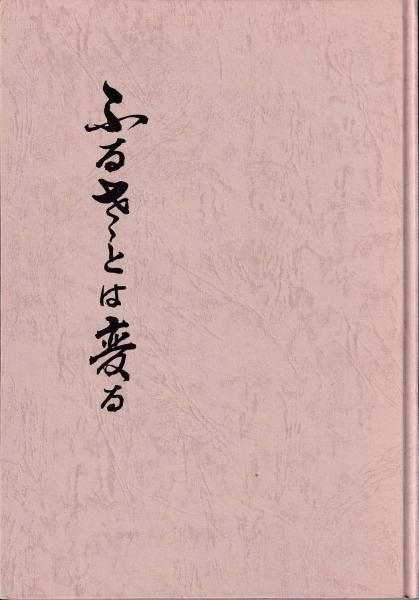 ふるさとは変る